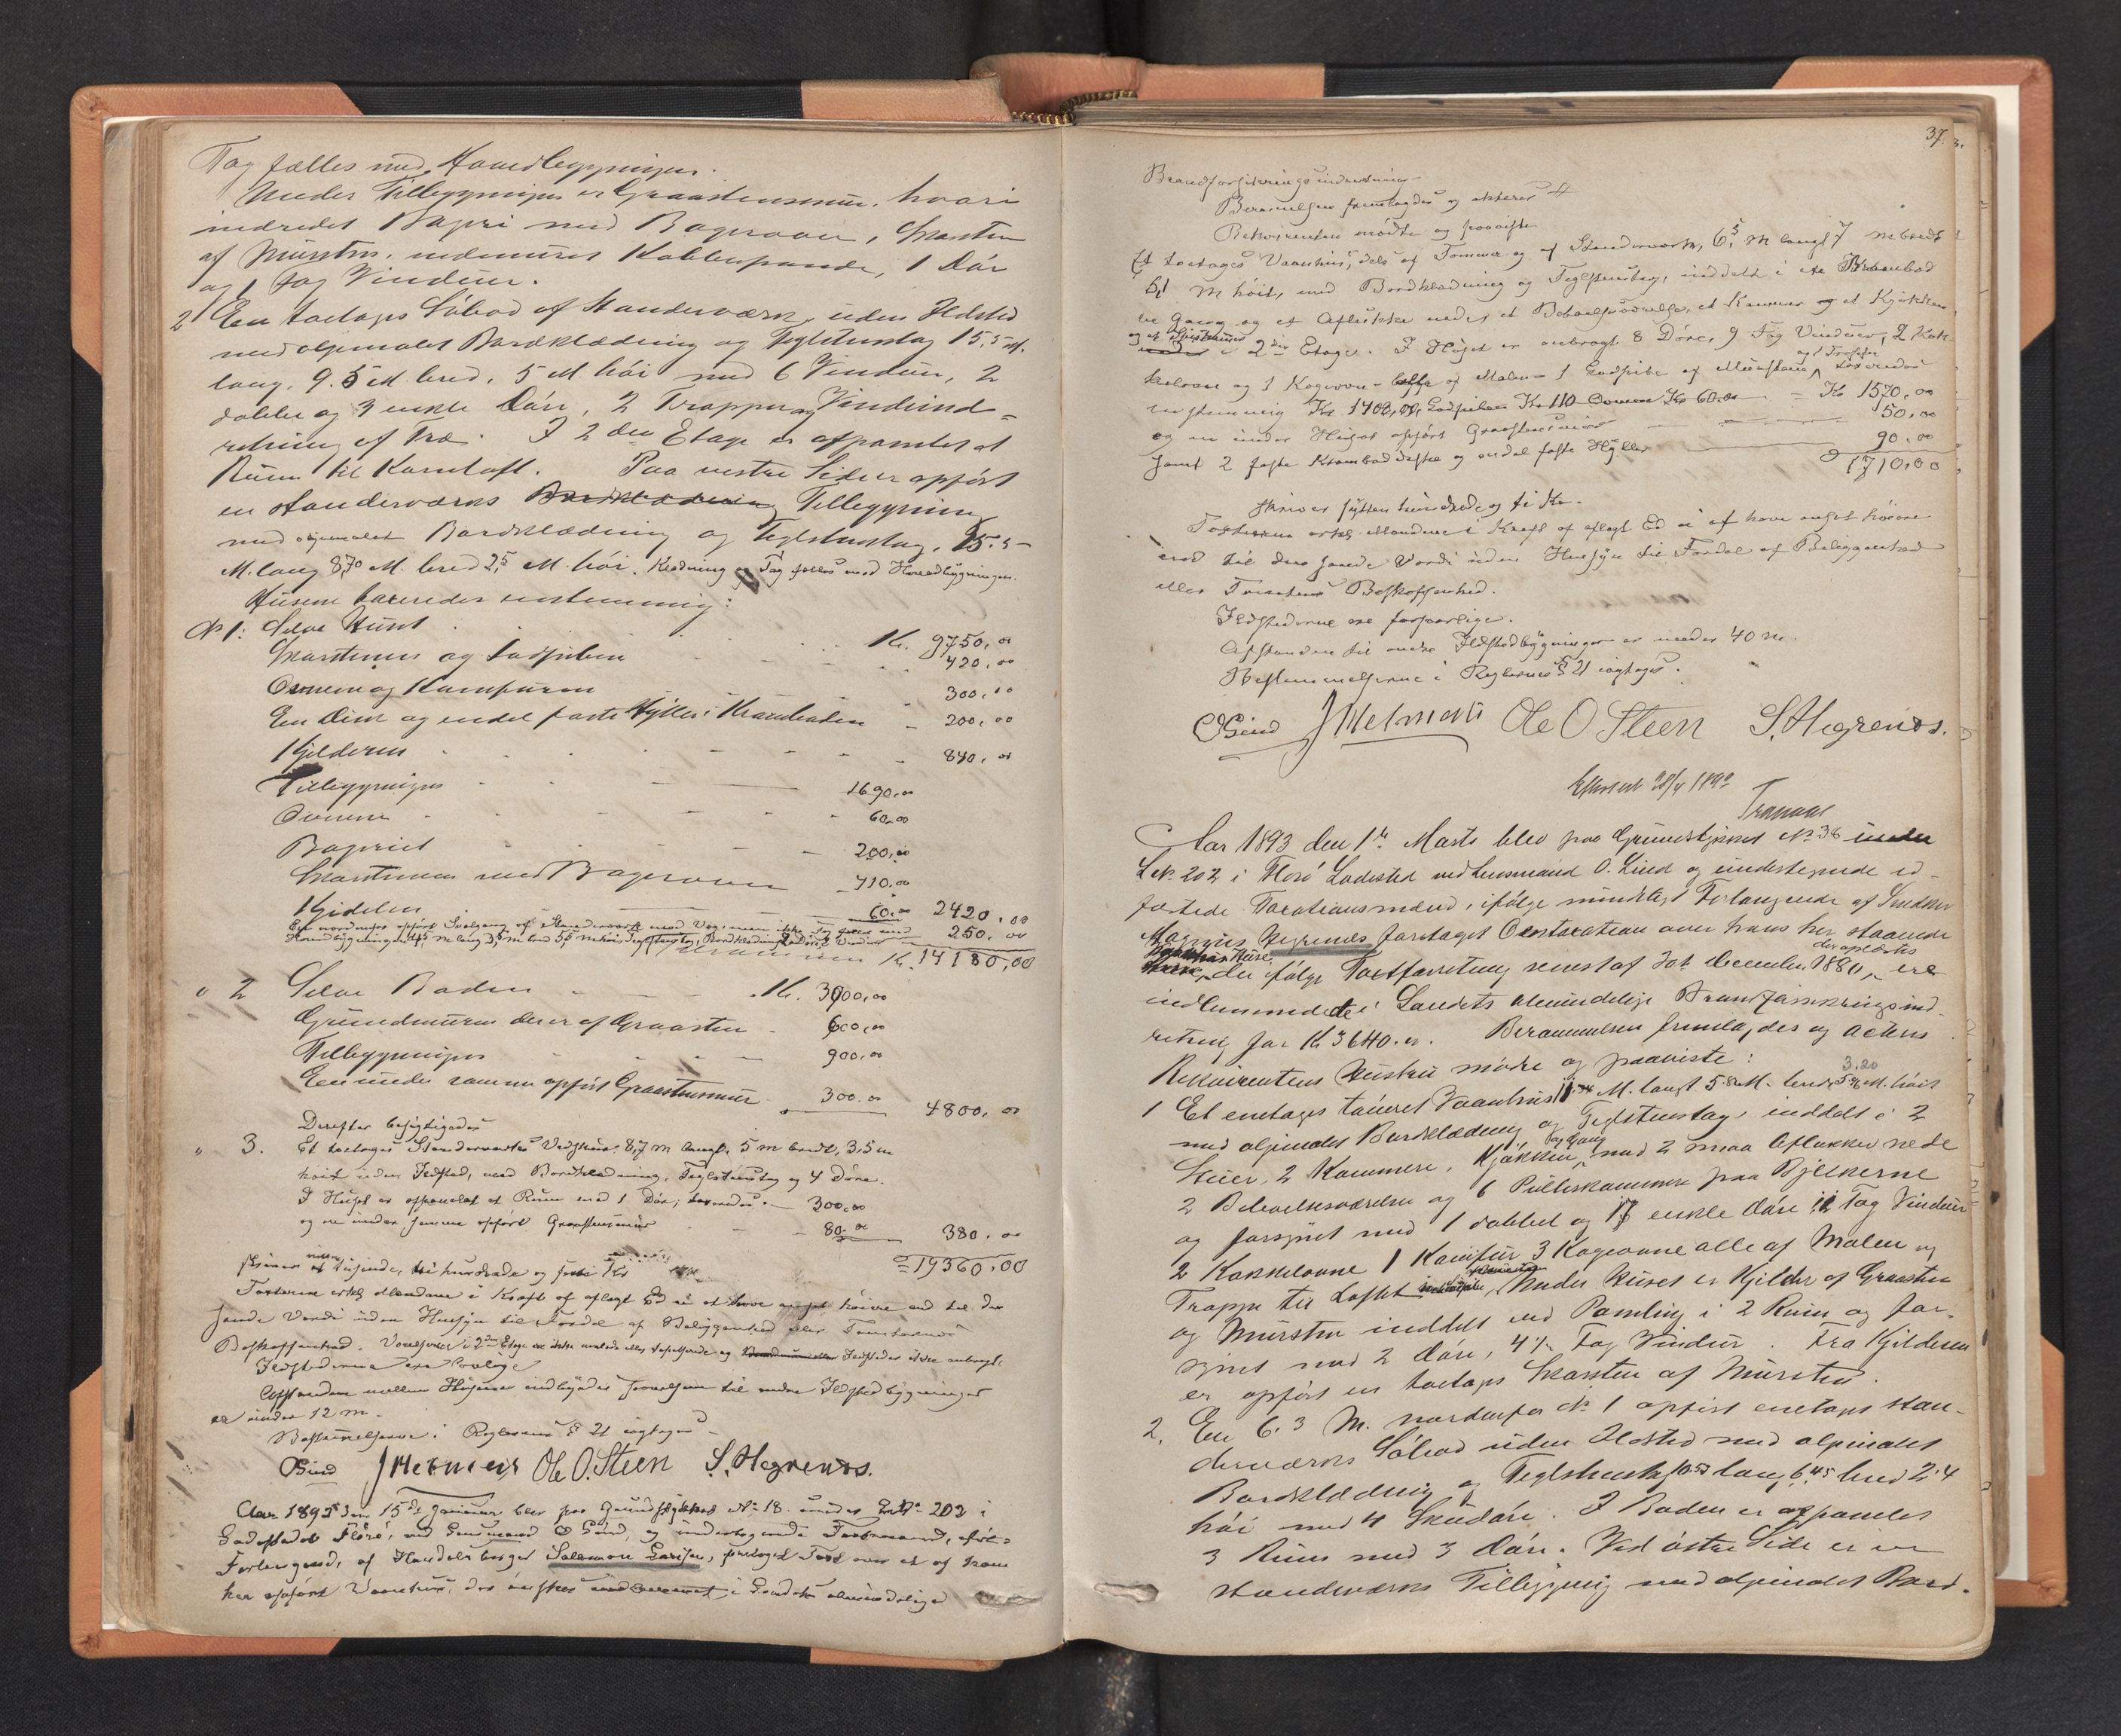 Tag fælles med Hovedbygningen.
Under Tilbygningen er Graastensmur, hvori
indredet Bageri med Bagerovn, Skorsten
af Mursten, indemuret Kobberpande, 1 Dør
og 1 Fag Vinduer.
2 En toetages Søbod af Standerværk uden Ildsted
med oljemalet Bordklædning og Teglstenstag 15,5 M.
lang, 9.5 M. bred, 5 M høi med 6 Vinduer, 2
doble og 3 enkle Døre, 2 Trapper og Vindeind-
retning af Træ. I 2den Etage er afpanelet et
Rum til Kornloft. Paa vestre Side er opført
en standerværks Bordklædning Tilbygning
med oljemalet Bordklædning og Teglstenstag, 15.5
M. lang 8,70 M. bred 2,5 M. høi. Klædning og Tag fælles med Hovedbygningen.
Husene taxeredes enstemmig:
No 1: Selve Huset Kr. 9750,00
Skorstenen og 420,00
Ovnene og Komfuren 300,00
En Disk og endel faste Hylder i Kramboden 200,00
Kjelderen 840,00
Tilbygningen 1690,00
Ovnene 60,00
Bageriet 200,00
Skorstenen med Bagerovnen 410,00
Kjedelen 60,00 2420,00
250,00
Kr. 14180,00
" 2 Selve Boden Kr. 3000,00
Grundmuren der er af Graasten 600,00
Tilbygningen 900,00
En under samme opført Graastensmur 300,00 4800,00
Derefter besigtigedes
" 3. Et toetages Standerværks Vedskur, 8,7 m langt, 5 m bredt, 3,5 m
høit uden Ildsted, med Bordklædning, Teglstenstag og 4 Døre.
I Huset er afpanelet et Rum med 1 Dør, taxeredes 300,00
og en under samme opført Graastensmur 80,00 380,00
19360,00
Skriver nitten tusinde, tre hundrede og Kr
Taxterne erkl. Mændene i Kraft af aflagt Ed ei at have ansat høiere end til den
sande Værdi uden Hensyn til Fordel af Beliggenhed eller Tomternes
Beskaffenhed. Værelserne i 2den Etage er ikke Ildsteder ikke anbragt.
Ildstederne ere lovlige
Afstanden mellem Husene indbyrdes forøvrigt til andre Ildstedbygninger
er under 12 m.
Bestemmelserne i Reglernes § 21 iagtoges
OLind J Hetmans Ole O. Steen S. Hegrenes.
Aar 1892 den 15de Januar blev paa Grundstykket No 18 under L No 202 i
Ladestedet Florø, ved Lensmand O Lind, og undertegnede Taxtmænd, efter
Forlangende, af Handelsborger Salamon Larsen, foretaget Taxt over et af ham
her opført Vaanhus, der ønskes indlemmet i Landets almindelige
37
Brandforsikringsindretning
Berammelsen fremlagdes og akteres
Rekvirenten mødte og paaviste
Et toetages Vaanhus, dels af Tømmer og af Standerværk, 6,5 M langt 7 m bredt
6,1 M høit, med Bordklædning og Teglstenstag, inddelt i en Krambod
en Gang og et Aflukke nede, et Beboelsesværelse, et Kammer og et Kjøkken
og et Spisekammer i 2den Etage. I Huset er anbragt 8 Døre, 9 Fag Vinduer, 2 Kak-
kelovne og 1 Kogeovn alle af Malm 1 af Mursten og 1 Trappe taxeredes
enstemmig Kr 1400,00, Kr 110 Ovnene Kr 60.00 = Kr 1570,00
og en under Huset opført Graastensmur 50,00
samt 2 faste Kramboddiske og endel faste Hylder 90,00
1710,00
Skriver sytten hundrede og ti Kr.
Taxterne erkl. Mændene i Kraft af aflagt Ed ei at have ansat høiere
end til den sande Værdi uden Hensyn til Fordel af Beliggenhed
eller Tomtens Beskaffenhed.
Ildstederne ere forsvarlige.
Afstanden til andre Ildstedbygninger er under 40 m.
Bestemmelserne i Reglernes § 21 iagtoges.
OLind J Hetmans Ole O Steen S. Hegrenes.
28/4 1892
Aar 1893 den 1ste Marts blev paa Grundstykket No 36 under
L No. 202 i Florø Ladested ved Lensmand O. Lind og undertegnede ed-
fæstede Taxationsmænd, ifølge mundtligt Forlangende af Snedker
Magnus Hegrenes foretaget Omtaxation over hans her staaende
Huse, der ifølge Taxtforretning senest af December 1880, ere
indlemmede i Landets almindelige Brandforsikringsind-
retning for Kr 3640.00. Berammelsen fremlagdes og acteres
Rekvirentens Hustru mødte og paaviste:
3.20
1 Et enetages tømret Vaanhus M. langt 5.8 M. bredt M. høit
med oljemalet Bordklædning og Teglstenstag, inddelt i 2
Stuer, 2 Kammere, Kjøkken, og Gang med 2 smaa Aflukker nede
2 Beboelsesværelser og 6 paa Bjelkerne
og forsynet med 1 dobbel og 17 enkle Døre 12 Fag Vinduer
2 Kakkelovne 1 Komfur 3 Kogeovne alle af Malm og
Trappe til Loftet. Under Huset er Kjelder af Graasten
og Mursten inddelt ved Panling i 2 Rum og for-
synet med 2 Døre, 4½ Fag Vinduer. Fra Kjelderen
er opført en toetages Skorsten af Mursten.
2. En 6.3 M. nordenfor No 1 opført enetages stan-
derværks Søbod uden Ildsted med oljemalet
Bordklædning og Teglstenstag 10.53 lang 6.45 bred 2.4
høi med 4 Skuddøre. I Boden er afpanelet
3 Rum med 3 Døre. Ved østre Side er en
standerværks Tilbygning med oljemalet Bord-